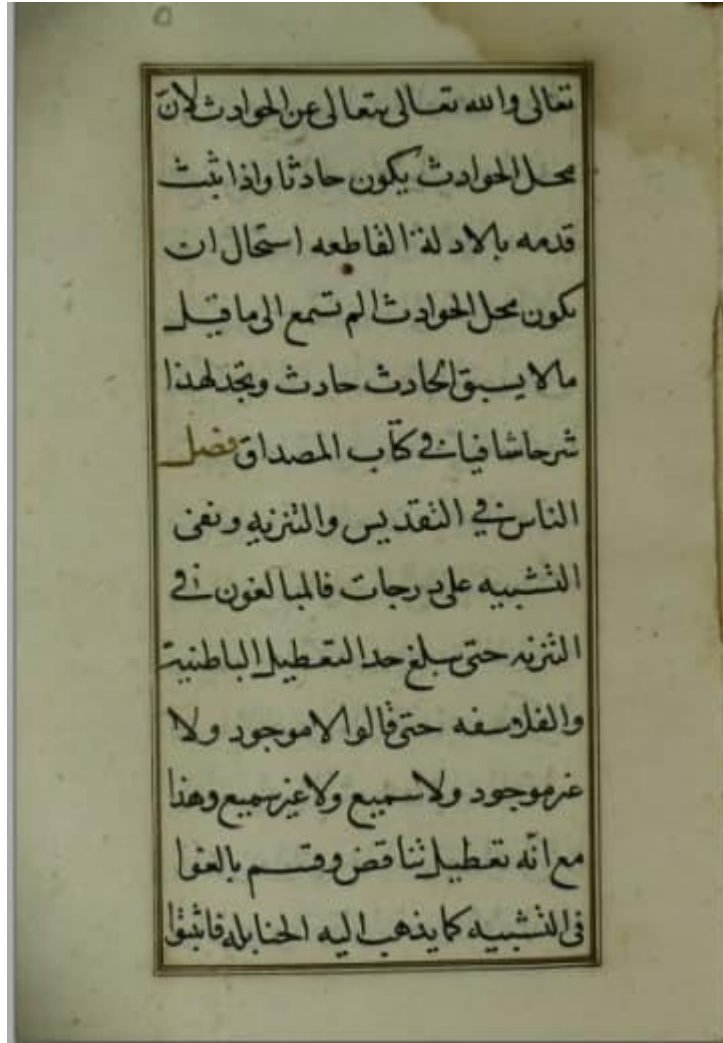 ٥
تعالى والله تعالى يتعالى عن الحوادث لانّ
محل الحوادث يكون حادثا واذا ثبت
قدمه بالادلة القاطعه استحال ان
يكون محل الحوادث الم تسمع الى ما قيل
مالا يسبق الحادث حادث وتجد لهذا
شرحا شافيا في كتاب المصداق فصل
الناس في التقديس والتنزيه ونفى
التشبيه على درجات فالمبالغون في
التنزيه حتى يبلغ حد التعطيل الباطنية
والفلاسفه حتى قالوا لا موجود ولا
غير موجود ولا سميع ولا غير سميع وهذا
مع انّه تعطيل تناقض وقسم بالغوا
في التشبيه كما يذهب اليه الحنابله فاثبتوا